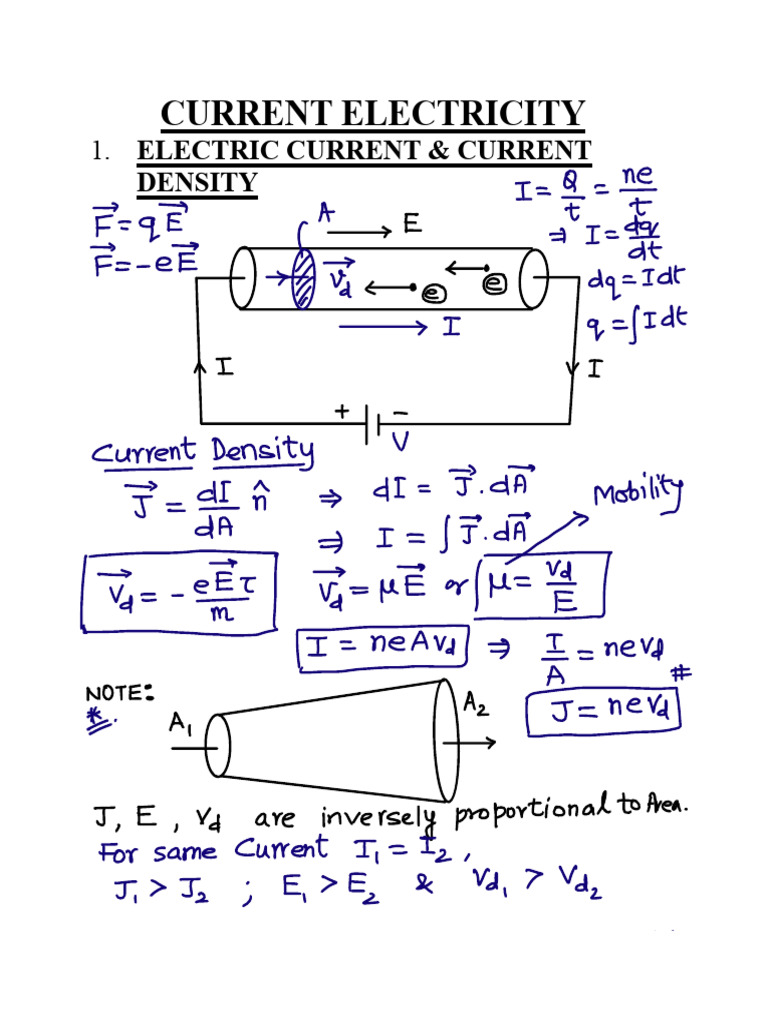 CURRENT ELECTRICITY
1. ELECTRIC CURRENT & CURRENT
DENSITY
F⃗ = qE⃗
F⃗ = -eE⃗
A
E
I = Q/t = ne/t
⇒ I = dq/dt
dq = Idt
q = ∫Idt
v⃗d
e
e
I
I
I
+ -
V
Current Density
J⃗ = dI/dA n̂ ⇒ dI = J⃗.dA⃗
⇒ I = ∫J⃗.dA⃗
Mobility
V⃗d = - eE⃗τ/m V⃗d = μE⃗ or μ = vd/E
I = neAvd ⇒ I/A = nevd #
J = nevd
NOTE:
*.
A1
A2
J, E, Vd are inversely proportional to Area.
For same Current I1 = I2,
J1 > J2 ; E1 > E2 & Vd1 > Vd2